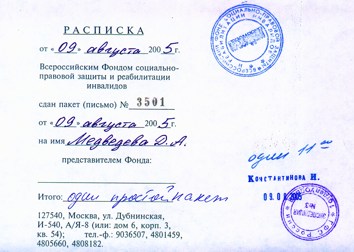 РАСПИСКА
от «09» августа 2005г.
Всероссийским Фондом социально-
правовой защиты и реабилитации
инвалидов
сдан пакет (письмо) № 3501
от «09» августа 2005г.
на имя Медведева Д.А.
представителем Фонда:
один
Константинова И.
09.0 2005
Итого: один простой пакет
127540, Москва, ул. Дубнинская,
И-540, А/Я-8 (или: дом 6, корп. 3,
кв. 54); тел.-ф.: 9036507, 4801459,
4805660, 4808182.
ГФС РОССИИ